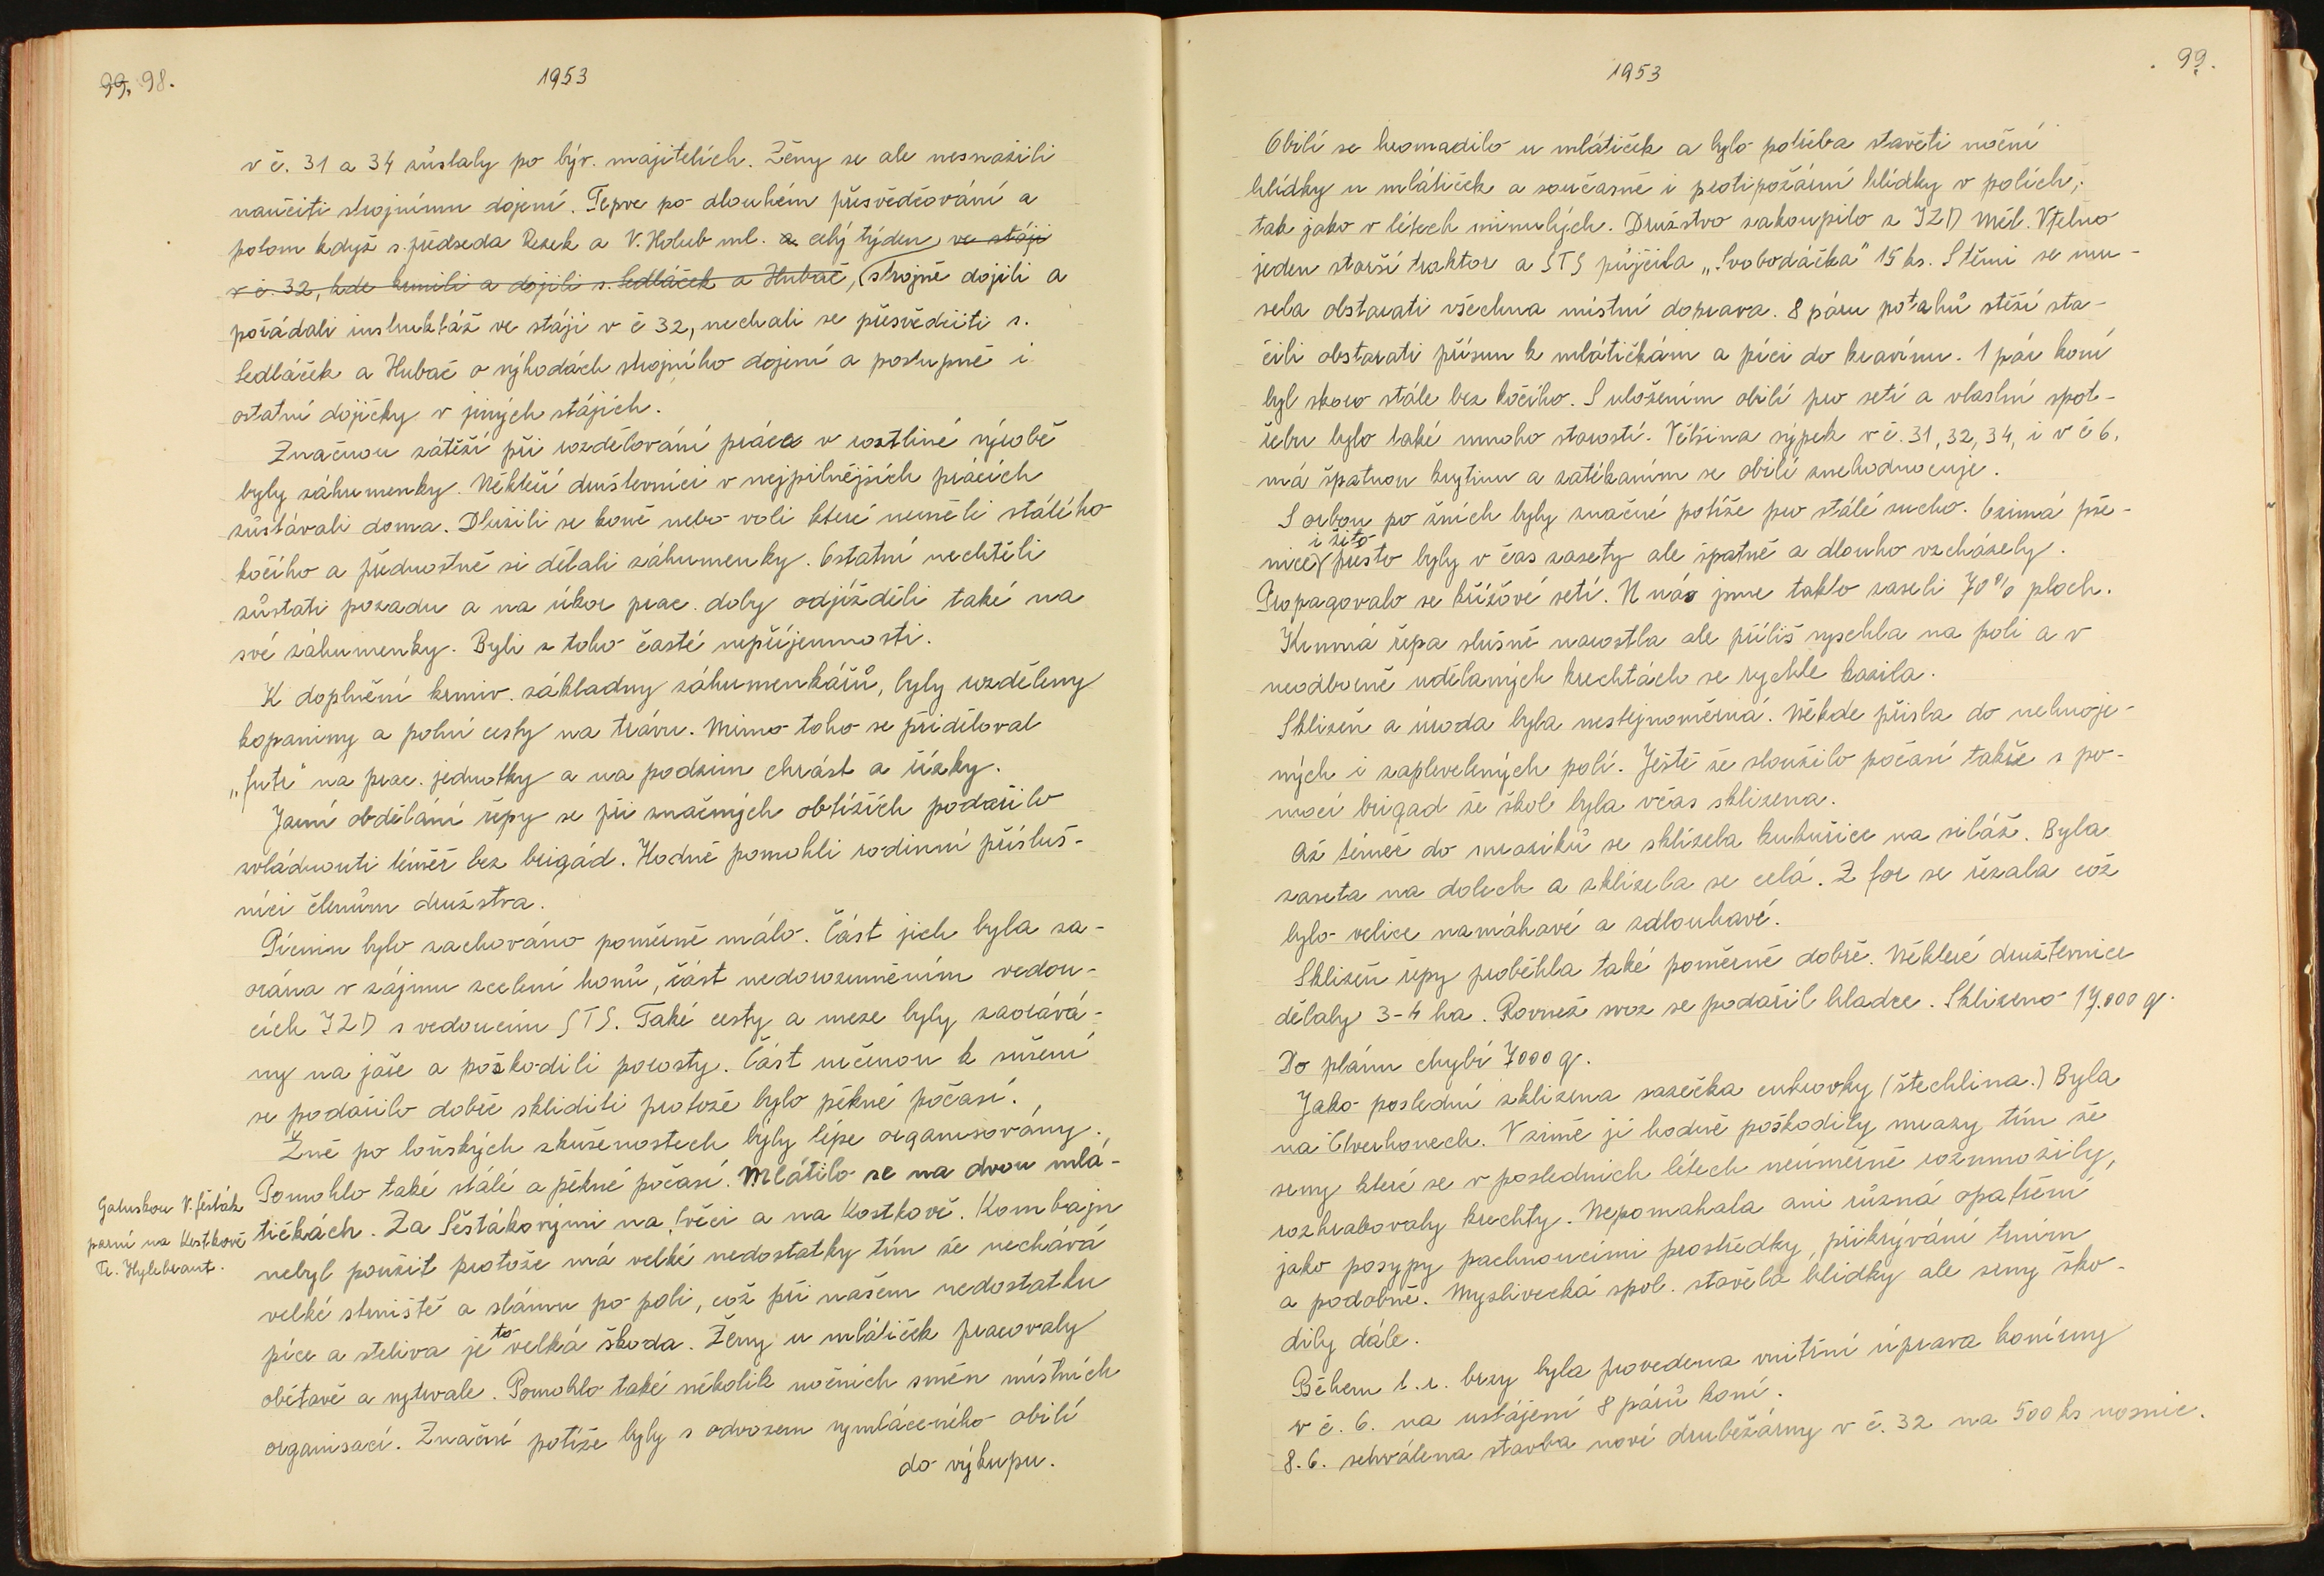 99. 98.
1953
v č. 31 a 34 zůstaly po býv. majitelích. Ženy se ale nesnažili
naučiti strojnímu dojení. Teprve po dlouhém přesvědčování a
potom když s. předseda Rezek a V. Holub ml. a celý týden, ve stáji
v č. 32, kde krmili a dojili s. Sedláček a Hubač, strojně dojili a
pořádali instruktáž ve stáji v č 32, nechali se přesvědčiti s.
Sedláček a Hubač o výhodách strojního dojení a postupně i
ostatní dojičky v jiných stájích.
Značnou zátěží při rozdělování práce v rostliné výrobě
byly záhumenky. Někteří družstevníci v nejpilnějších pracích
zůstávali doma. Dlužili se koně nebo voli které neměli stálého
kočího a přednostně si dělali záhumenky. Ostatní nechtěli
zůstati pozadu a na úkor prac. doby odjížděli také na
své záhumenky. Byli z toho časté nepříjemnosti.
K doplnění krmiv. základny záhumenkářů, byly rozděleny
kopaniny a polní cesty na trávu. Mimo toho se přiděloval
„futr" na prac. jednotky a na podzim chrást a řízky.
Jarní obdělání řepy se při značných obtížích podařilo
zvládnouti téměř bez brigád. Hodně pomohli rodinní přísluš-
níci členům družstva.
Pícnin bylo zachováno poměrně málo. Část jich byla za-
orána v zájmu scelení honů, část nedorozuměním vedou-
cích JZD s vedoucím STS. Také cesty a meze byly zaorává-
ny na jaře a poškodili porosty. Část určenou k sušení
se podařilo dobře skliditi protože bylo pěkné počasí.
Žně po loňských zkušenostech byly lépe organisovány.
Pomohlo také stálé a pěkné počasí. Mlátilo se na dvou mlá-
Galuskou V. Šesták
parní na Kostkově
Fr. Hylebrant.
tičkách. Za Šestákovými na Svěci a na Kostkově. Kombajn
nebyl použit protože má velké nedostatky tím že nechává
velké strniště a slámu po poli, což při našem nedostatku
píce a steliva je to velká škoda. Ženy u mlátiček pracovaly
obětavě a vytrvale. Pomohlo také několik nočních směn místních
organisací. Značné potíže byly s odvozem vymláceného obilí
do výkupu.
1953
99.
Obilí se hromadilo u mlátiček a bylo potřeba stavěti noční
hlídky u mlátiček a současně i protipožární hlídky v polích,
tak jako v létech minulých. Družstvo zakoupilo z JZD Měl. Vtelno
jeden starší traktor a STS půjčila „Svobodáčka" 15 ks. S těmi se mu-
sela obstarati všechna místní doprava. 8 páru potahů stěží sta-
čili obstarati přísun k mlátičkám a píci do kravínu. 1 pár koní
byl skoro stále bez kočího. S uložením obilí pro setí a vlastní spot-
řebu bylo také mnoho starostí. Většina sýpek v č. 31, 32, 34, i v č 6,
má špatnou krytinu a zatékáním se obilí znehodnocuje.
S orbou po žních byly značné potíže pro stálé sucho. Ozimá pše-
i žito
nice přesto byly v čas zasety ale špatně a dlouho vzcházely.
Propagovalo se křížové setí. U nás jsme takto zaseli 70% ploch.
Krmná řepa slušně narostla ale příliš vyschla na poli a v
neodborně udělaných krechtách se rychle kazila.
Sklizeň a úroda byla nestejnoměrná. Někde přišla do nehnoje-
ných i zaplevelených polí. Ještě že sloužilo počasí takže s po-
mocí brigad že škol byla včas sklizena.
Až téměř do mrazíků se sklízela kukuřice na siláž. Byla
zaseta na dolech a sklízela se celá. Z for se řezala což
bylo velice namáhavé a zdlouhavé.
Sklizeň řepy proběhla také poměrně dobře. Některé družstevnice
dělaly 3-4 ha. Rovněž svoz se podařil hladce. Sklizeno 17.000 q.
Do plánu chybí 7000 q.
Jako poslední sklizena sazečka cukrovky (štechlina.) Byla
na Čtverhonech. V zimě jí hodně poškodily mrazy tím že
srny které se v posledních létech neúměrně rozmnožily,
rozhrabovaly krechty. Nepomahala ani různá opatření
jako posypy pachnoucími prostředky, přikrývání trním
a podobně. Myslivecká spol. stavěla hlídky ale srny ško-
dily dále.
Během t. r. brzy byla provedena vnitřní úprava konírny
v č. 6. na ustájení 8 párů koní.
8. 6. schválena stavba nové drubežárny v č. 32 na 500 ks nosnic.